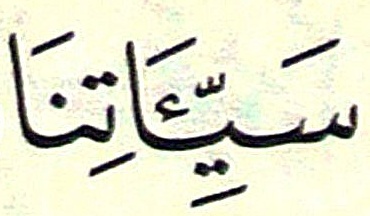 سَيِّئَاتِنَا